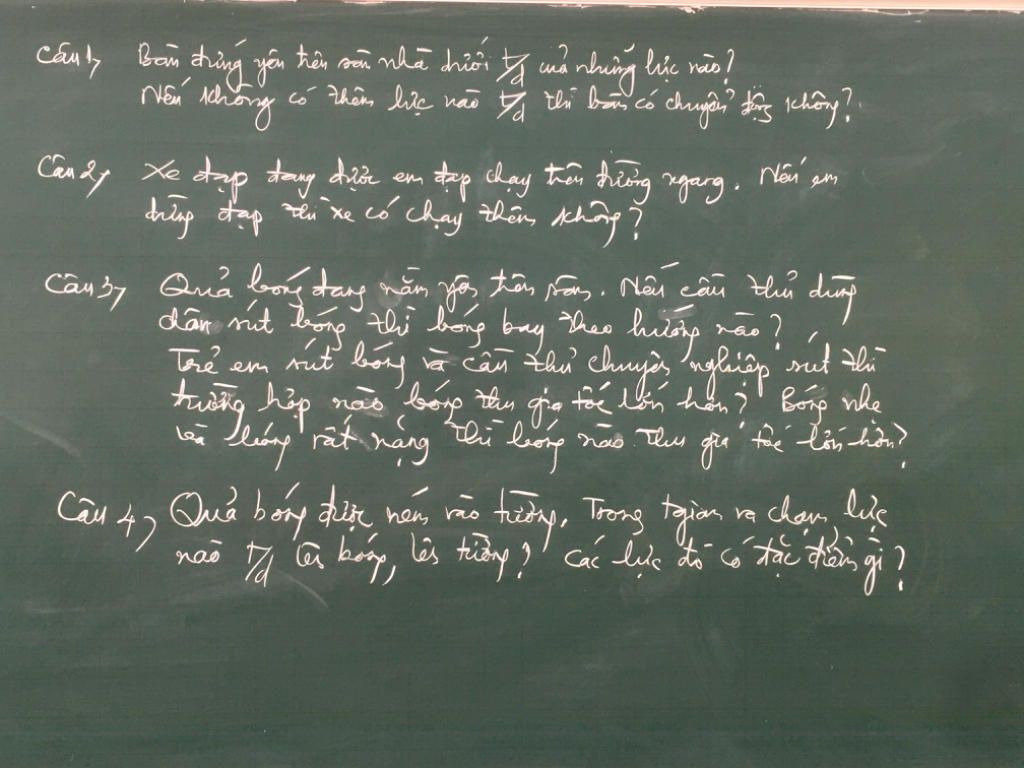 Câu 1, Bàn đứng yên trên sàn nhà dưới t/d của những lực nào?
Nếu không có thêm lực nào t/d thì bàn có chuyển động không?
Câu 2, Xe đạp đang được em đạp chạy trên đường ngang. Nếu em
dừng đạp thì xe có chạy thêm không?
Câu 3, Quả bóng đang nằm yên trên sân. Nếu cầu thủ dùng
chân sút bóng thì bóng bay theo hướng nào?
Trẻ em sút bóng và cầu thủ chuyên nghiệp sút thì
trường hợp nào bóng thu gia tốc lớn hơn? Bóng nhẹ
và bóng rất nặng thì bóng nào thu gia tốc lớn hơn?
Câu 4, Quả bóng được ném vào tường. Trong tgian va chạm, lực
nào t/d lên bóng, lên tường? Các lực đó có đặc điểm gì?